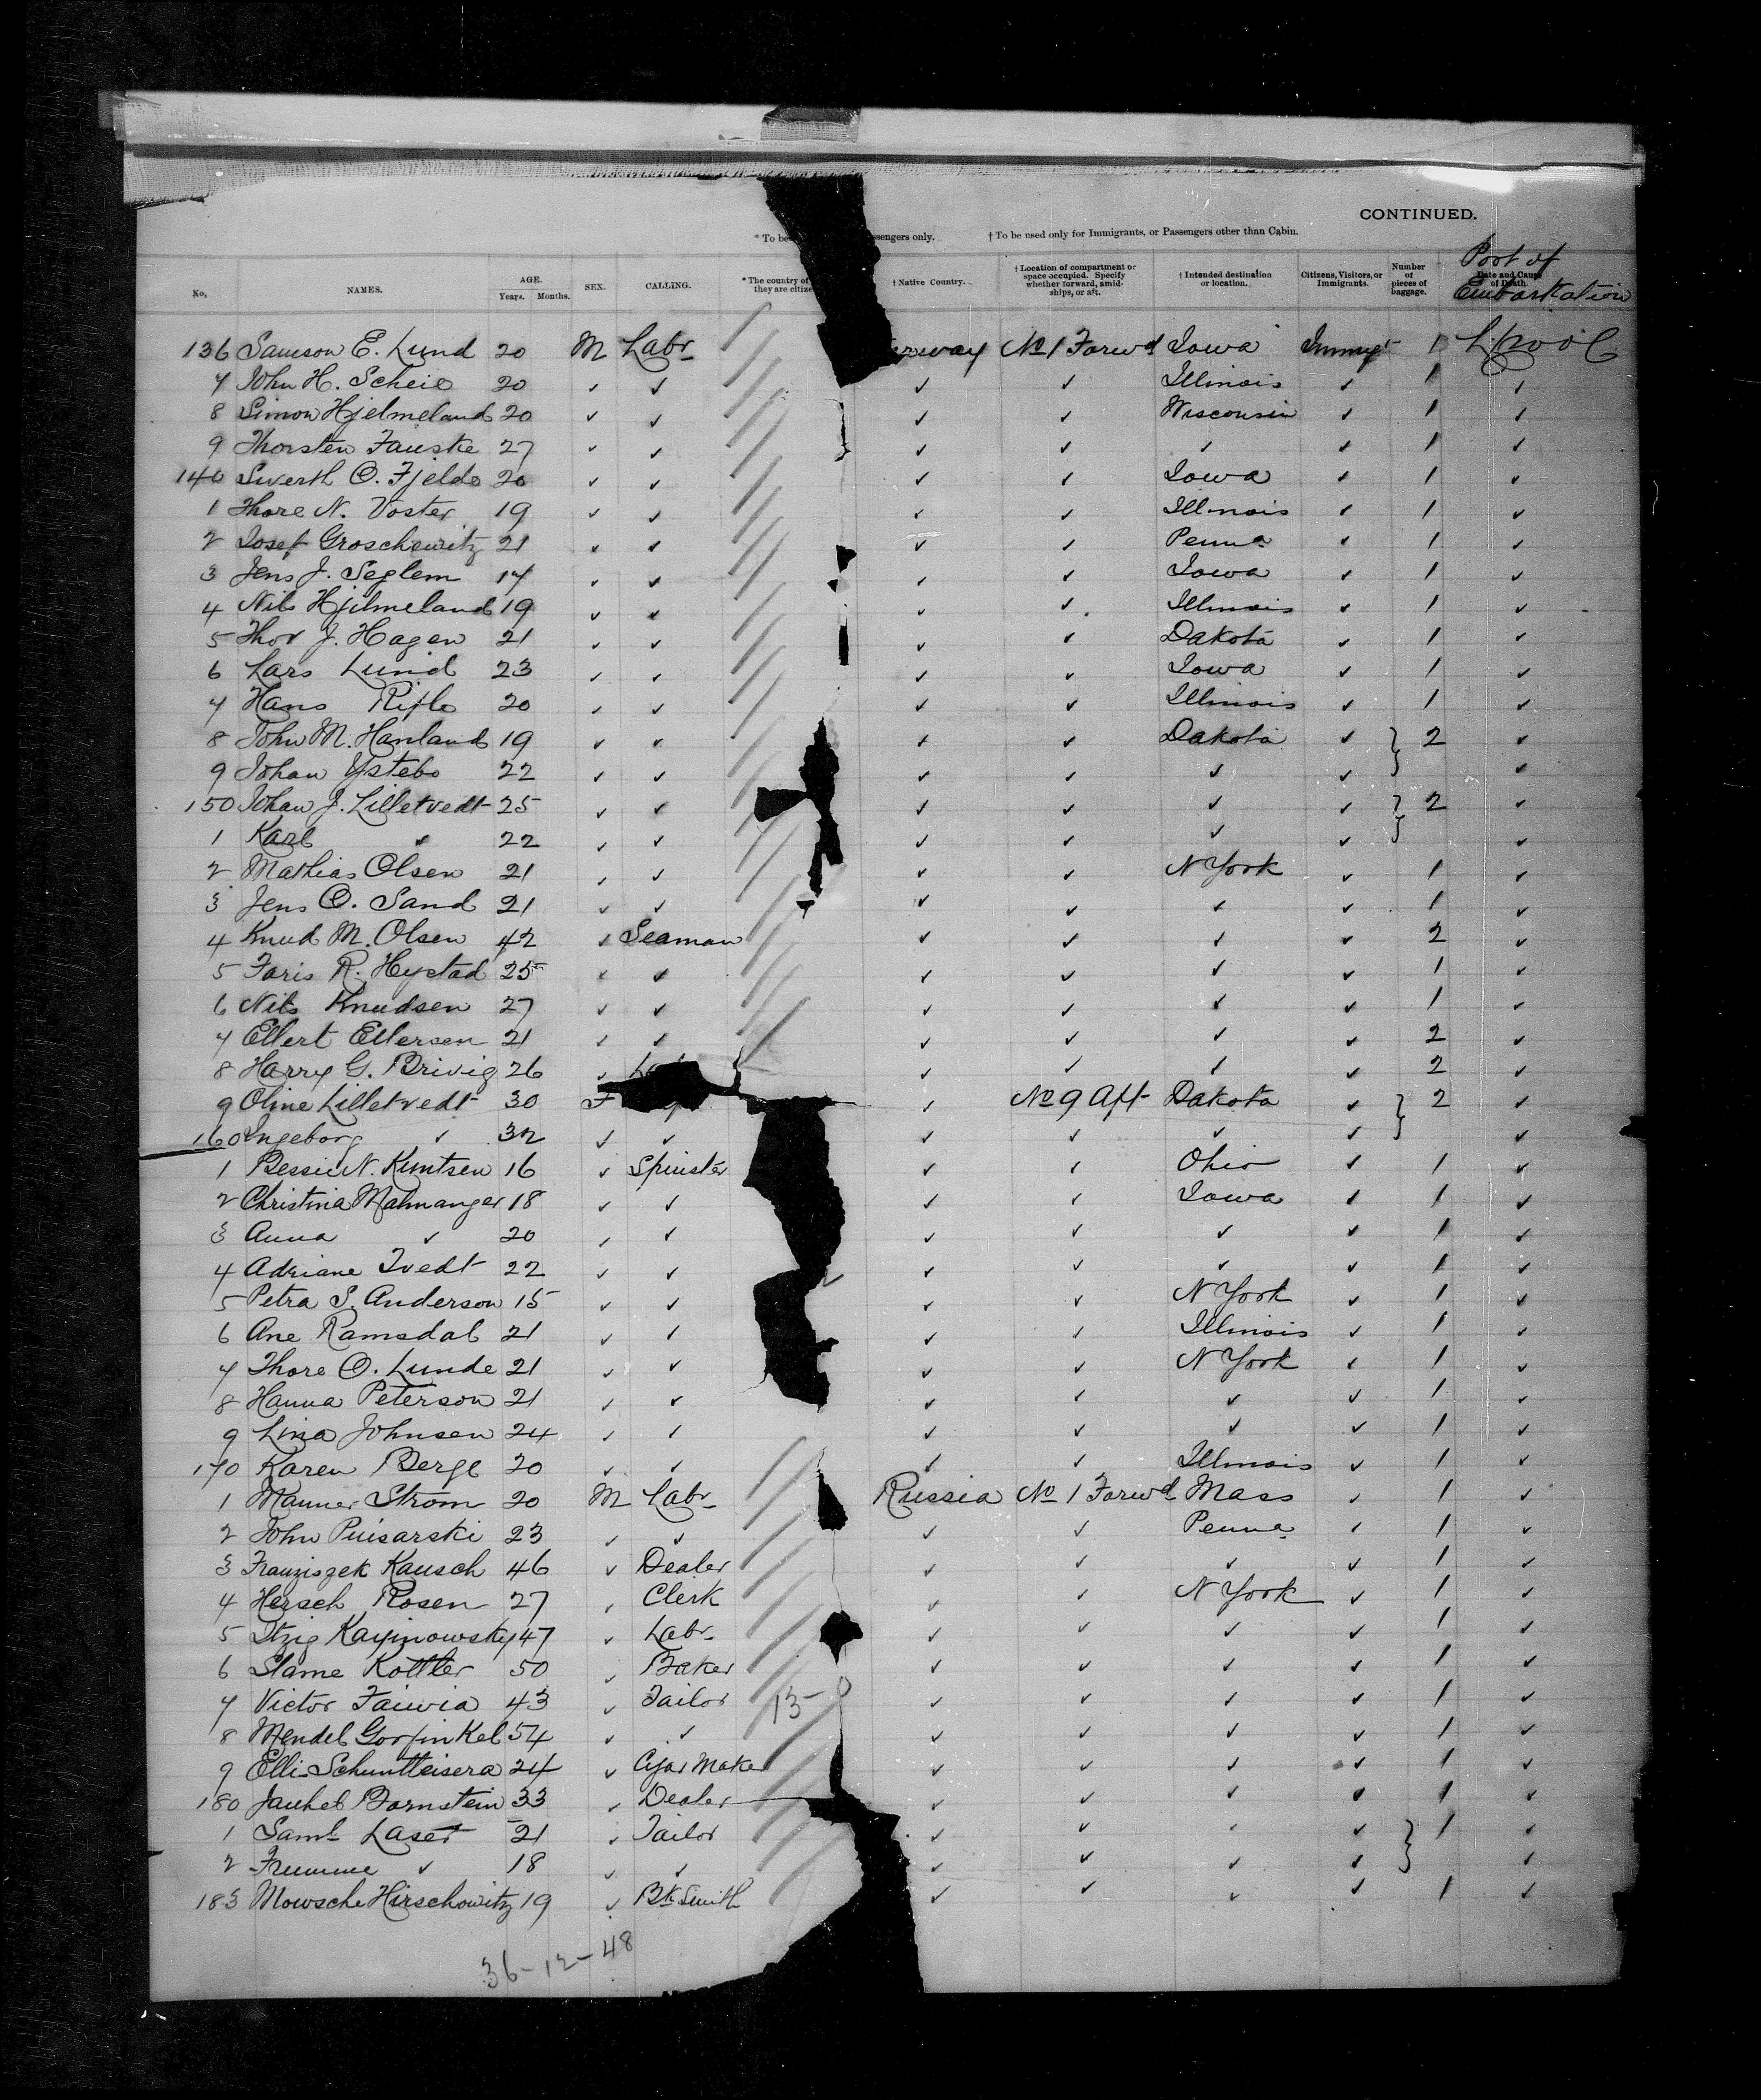 CONTINUED.
* To be ssengers only. † To be used only for Immigrants, or Passengers other than Cabin.
Port of Embarkation
No. NAMES. AGE. Years. Months. SEX. CALLING. * The country of they are citize † Native Country. † Location of compartment or space occupied. Specify whether forward, amidships, or aft. † Intended destination or location. Citizens, Visitors, or Immigrants. Number of pieces of baggage. Date and Cause of Death.
136 Samson E. Lund 20 M Labr rway No 1 Forwd Iowa Immigt 1 L'pool
7 John H. Scheie 20 ✓ ✓ ✓ ✓ Illinois ✓ 1 ✓
8 Simon Hjelmeland 20 ✓ ✓ ✓ ✓ Wisconsin ✓ 1 ✓
9 Thorsten Fauske 27 ✓ ✓ ✓ ✓ ✓ ✓ 1 ✓
140 Siverth O. Fjelde 20 ✓ ✓ ✓ ✓ Iowa ✓ 1 ✓
1 Thore N. Voster 19 ✓ ✓ ✓ ✓ Illinois ✓ 1 ✓
2 Josef Groschewitz 21 ✓ ✓ ✓ ✓ Penna ✓ 1 ✓
3 Jens J. Seglem 17 ✓ ✓ ✓ ✓ Iowa ✓ 1 ✓
4 Nils Hjilmeland 19 ✓ ✓ ✓ ✓ Illinois ✓ 1 ✓
5 Thor J. Hagen 21 ✓ ✓ ✓ ✓ Dakota ✓ 1 ✓
6 Lars Lund 23 ✓ ✓ ✓ ✓ Iowa ✓ 1 ✓
7 Hans 20 ✓ ✓ ✓ ✓ Illinois ✓ 1 ✓
8 John M. Hanland 19 ✓ ✓ ✓ ✓ Dakota ✓ } 2 ✓
9 Johan Ystebo 22 ✓ ✓ ✓ ✓ ✓ ✓ ✓
150 Johan J. Lilletvedt 25 ✓ ✓ ✓ ✓ ✓ ✓ } 2 ✓
1 Karl ✓ 22 ✓ ✓ ✓ ✓ ✓ ✓ ✓
2 Mathias Olsen 21 ✓ ✓ ✓ ✓ N York ✓ 1 ✓
3 Jens O. Sand 21 ✓ ✓ ✓ ✓ ✓ ✓ 1 ✓
4 Knud M. Olsen 42 ✓ Seaman ✓ ✓ ✓ ✓ 2 ✓
5 Faris R. Hystad 25 ✓ ✓ ✓ ✓ ✓ ✓ 1 ✓
6 Nils Knudsen 27 ✓ ✓ ✓ ✓ ✓ ✓ 1 ✓
7 Ellert Ellersen 21 ✓ ✓ ✓ ✓ ✓ ✓ 2 ✓
8 Harry G. Brivig 26 ✓ ✓ ✓ ✓ ✓ 2 ✓
9 Oline Lilletvedt 30 F ✓ No 9 Aft Dakota ✓ } 2 ✓
160 Ingeborg ✓ 32 ✓ ✓ ✓ ✓ ✓ ✓ ✓
1 Bessie N. Kuntsen 16 ✓ Spinster ✓ ✓ Ohio ✓ 1 ✓
2 Christina Malmanger 18 ✓ ✓ ✓ ✓ Iowa ✓ 1 ✓
3 Anna ✓ 20 ✓ ✓ ✓ ✓ ✓ ✓ 1 ✓
4 Adriane Tvedt 22 ✓ ✓ ✓ ✓ ✓ ✓ 1 ✓
5 Petra S. Anderson 15 ✓ ✓ ✓ ✓ N York ✓ 1 ✓
6 Ane Ramsdal 21 ✓ ✓ ✓ ✓ Illinois ✓ 1 ✓
7 Thore O. Lunde 21 ✓ ✓ ✓ ✓ N York ✓ 1 ✓
8 Hanna Peterson 21 ✓ ✓ ✓ ✓ ✓ ✓ 1 ✓
9 Lina Johnsen 24 ✓ ✓ ✓ ✓ ✓ ✓ 1 ✓
170 Karen Berge 20 ✓ ✓ ✓ ✓ Illinois ✓ 1 ✓
1 Manner Strom 20 M Labr Russia No 1 Forwd Mass ✓ 1 ✓
2 John Puisarski 23 ✓ ✓ ✓ ✓ Penna ✓ 1 ✓
3 Franziszek Kausch 46 ✓ Dealer ✓ ✓ ✓ ✓ 1 ✓
4 Hersch Rosen 27 ✓ Clerk ✓ ✓ N York ✓ 1 ✓
5 Itzig 47 ✓ Labr ✓ ✓ ✓ ✓ 1 ✓
6 Slame Kottler 50 ✓ Baker ✓ ✓ ✓ ✓ 1 ✓
7 Victor Faiwia 43 ✓ Tailor 13 ✓ ✓ ✓ ✓ 1 ✓
8 Mendel Gorfinkel 54 ✓ ✓ ✓ ✓ ✓ ✓ 1 ✓
9 Ellis 24 ✓ Cigar Maker ✓ ✓ ✓ ✓ 1 ✓
180 Jankel Bornstein 33 ✓ Dealer ✓ ✓ ✓ ✓ 1 ✓
1 Saml Laser 21 ✓ Tailor ✓ ✓ ✓ ✓ } 1 ✓
2 Frumme ✓ 18 ✓ ✓ ✓ ✓ ✓ ✓ ✓
183 Mowsche Hirschowitz 19 ✓ Bk Smith ✓ ✓ ✓ ✓ 1 ✓
36-12-48